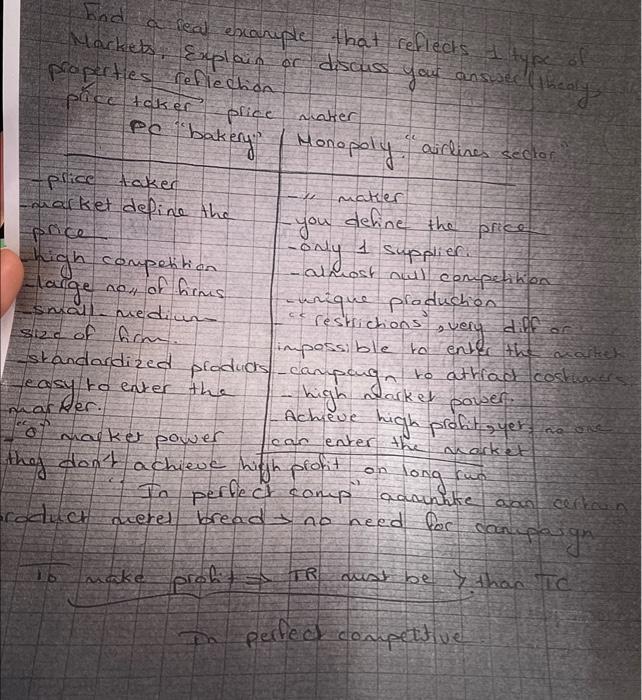 Find a real example that reflects 1 type of
Markets, Explain or discuss your answer (theory,
properties reflection
price taker price maker
PC "bakery" Monopoly "airlines sector"
-price taker
-market define the
price
-high competition
-large no,, of firms
-small-medium
size of firm.
-standardized products
-easy to enter the
market.
-"0" market power
they don't achieve high profit on long run
-" maker
-you define the price
-only 1 supplier.
-almost null competition
-unique production
"restrictions", very diff or
impossible to enter the market
-campaign to attract costumers
-high Market power.
-Achieve high profit, yet no one
can enter the market
"In perfect comp" certain
product bread → no need for campaign
To make profit ⇒ TR must be > than TC
In perfect competitive